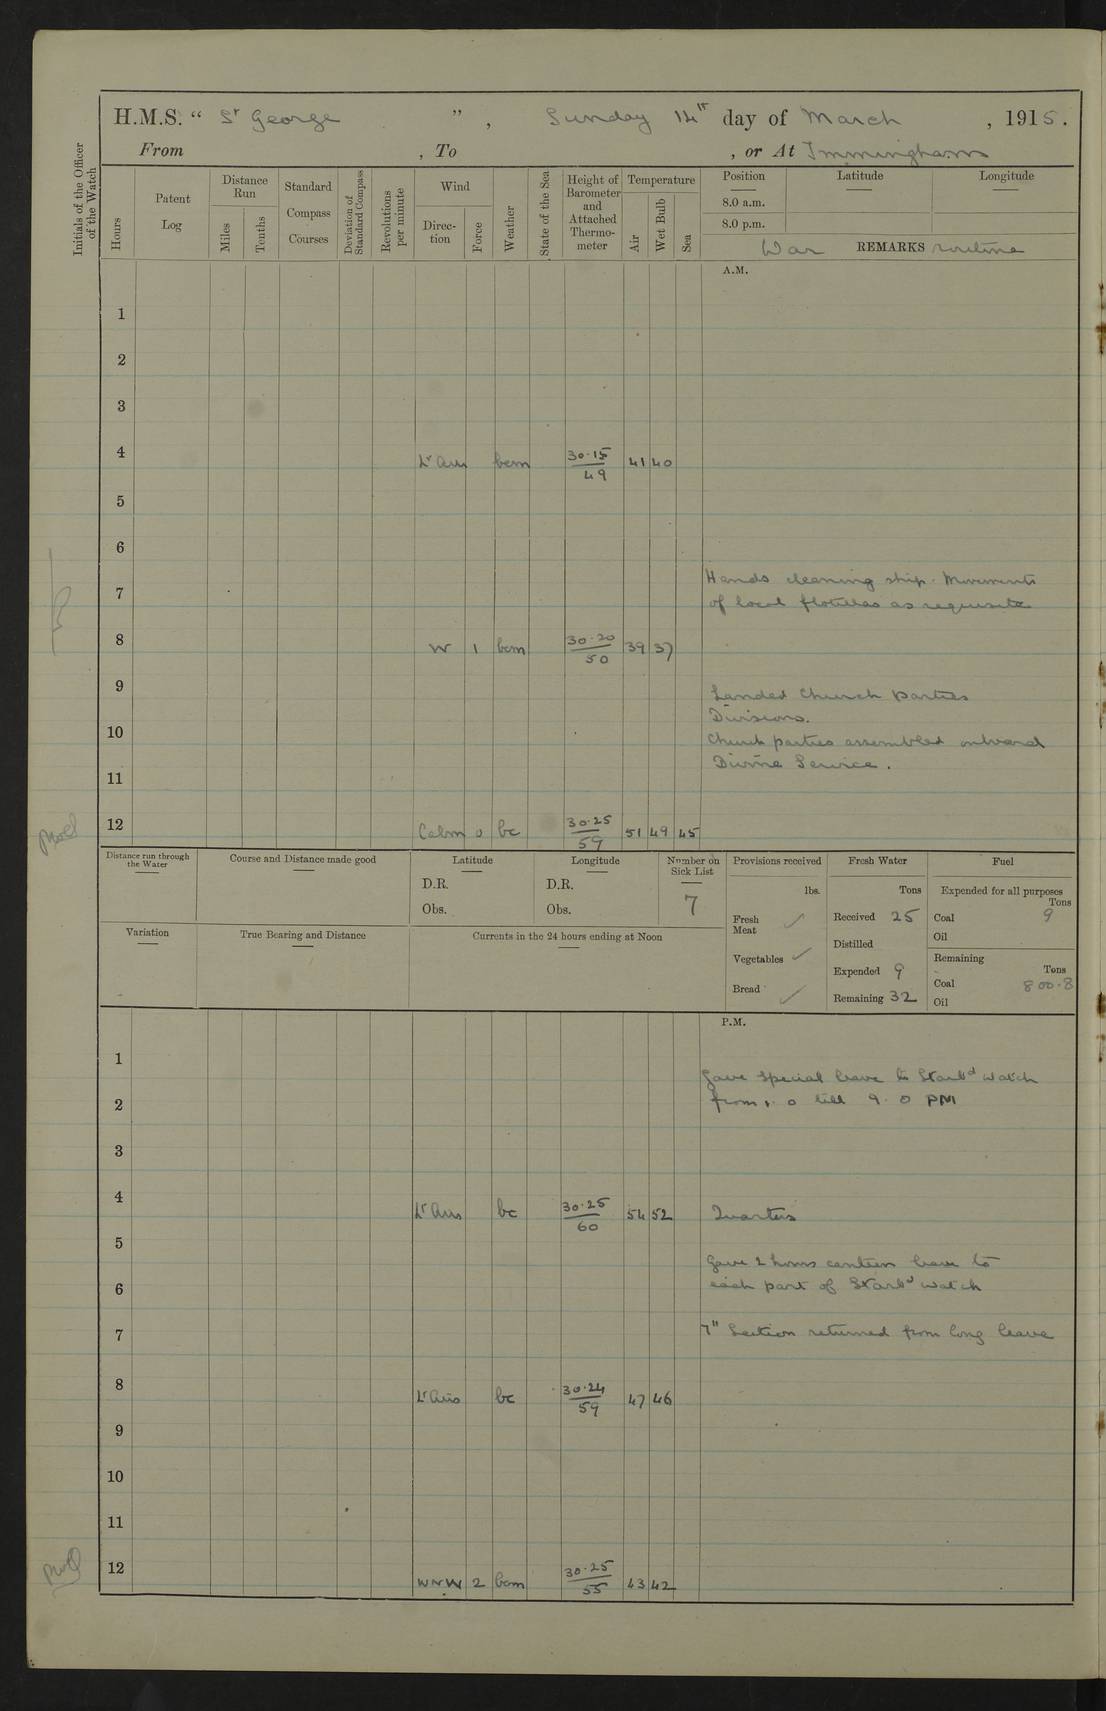 H.M.S. “ St George ” , Sunday 14th day of March , 1915.
From , To , or At Immingham
Initials of the Officer of the Watch
Hours
Patent Log
Distance Run
Miles
Tenths
Standard Compass Courses
Deviation of Standard Compass
Revolutions per minute
Wind
Direction
Force
Weather
State of the Sea
Height of Barometer and Attached Thermometer
Temperature
Air
Wet Bulb
Sea
Position
Latitude
Longitude
8.0 a.m.
8.0 p.m.
War REMARKS routine
A.M.
1
2
3
4 Lt Airs bcm 30.15 / 49 41 40
5
6
Hands cleaning ship. Movements
7
of local flotillas as requisite
8 W 1 bcm 30.20 / 50 39 37
9
Landed Church parties
Divisions.
10
Church parties assembled onboard
Divine Service.
11
12 Calm 0 bc 30.25 / 59 51 49 45
Distance run through the Water
Course and Distance made good
Latitude
D.R.
Obs.
Longitude
D.R.
Obs.
Number on Sick List
7
Provisions received
lbs.
Fresh Meat ✓
Vegetables ✓
Bread ✓
Fresh Water
Tons
Received 25
Distilled
Expended 9
Remaining 32
Fuel
Expended for all purposes
Tons
Coal 9
Oil
Remaining
Tons
Coal 800.8
Oil
Variation
True Bearing and Distance
Currents in the 24 hours ending at Noon
P.M.
1
Gave special leave to Starbd watch
2
from 1.0 till 9.0 PM
3
4 Lt Airs bc 30.25 / 60 54 52 Quarters
5
Gave 2 hours canteen leave to
6 each part of Starbd watch
7 7th Section returned from long leave
8 Lt Airs bc 30.24 / 59 47 46
9
10
11
12 WNW 2 bcm 30.25 / 55 43 42